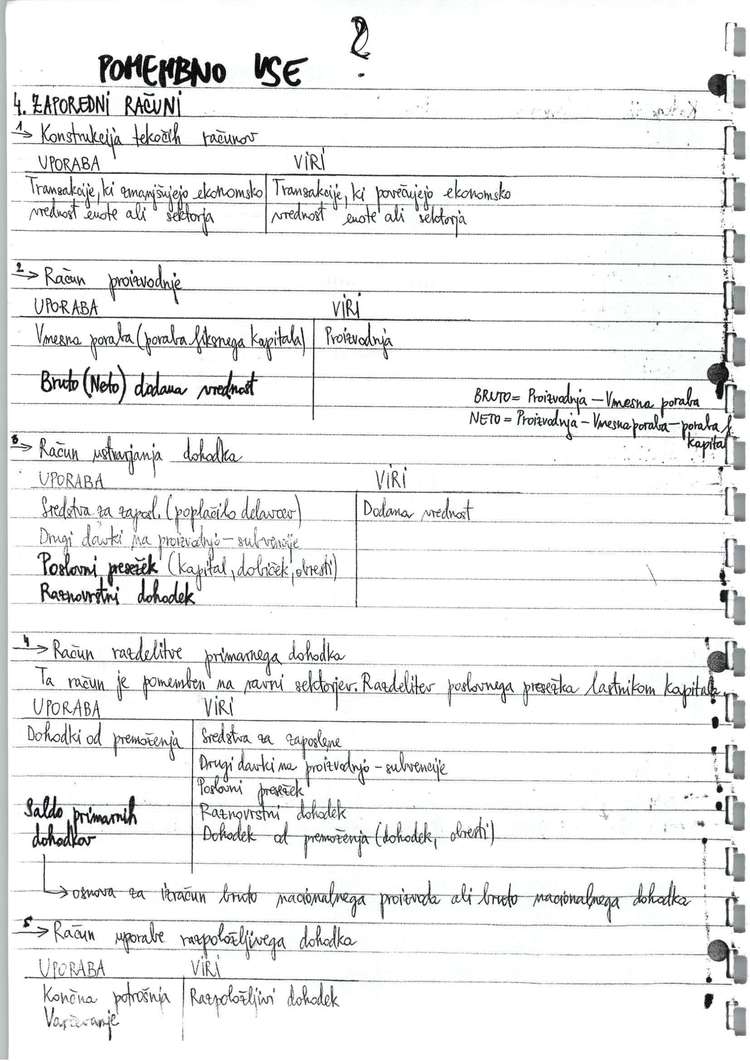 ?
POMEMBNO VSE
4. ZAPOREDNI RAČUNI
1→ Konstrukcija tekočih računov
UPORABA VIRI
Transakcije, ki zmanjšujejo ekonomsko Transakcije, ki povečujejo ekonomsko
vrednost enote ali sektorja vrednost enote ali sektorja
2→ Račun proizvodnje
UPORABA VIRI
Vmesna poraba (poraba fiksnega kapitala) Proizvodnja
Bruto (Neto) dodana vrednost
BRUTO = Proizvodnja – Vmesna poraba
NETO = Proizvodnja – Vmesna poraba – poraba f.
kapital
3→ Račun ustvarjanja dohodka
UPORABA VIRI
Sredstva za zaposl. (poplačilo delavcev) Dodana vrednost
Drugi davki na proizvodnjo – subvencije
Poslovni presežek (kapital, dobiček, obresti)
Raznovrstni dohodek
4→ Račun razdelitve primarnega dohodka
Ta račun je pomemben na ravni sektorjev. Razdelitev poslovnega presežka lastnikom kapitala.
UPORABA VIRI
Dohodki od premoženja Sredstva za zaposlene
Drugi davki na proizvodnjo – subvencije
Poslovni presežek
Saldo primarnih Raznovrstni dohodek
dohodkov Dohodek od premoženja (dohodek, obresti)
→ osnova za izračun bruto nacionalnega proizvoda ali bruto nacionalnega dohodka
5→ Račun uporabe razpoložljivega dohodka
UPORABA VIRI
Končna potrošnja Razpoložljivi dohodek
Varčevanje